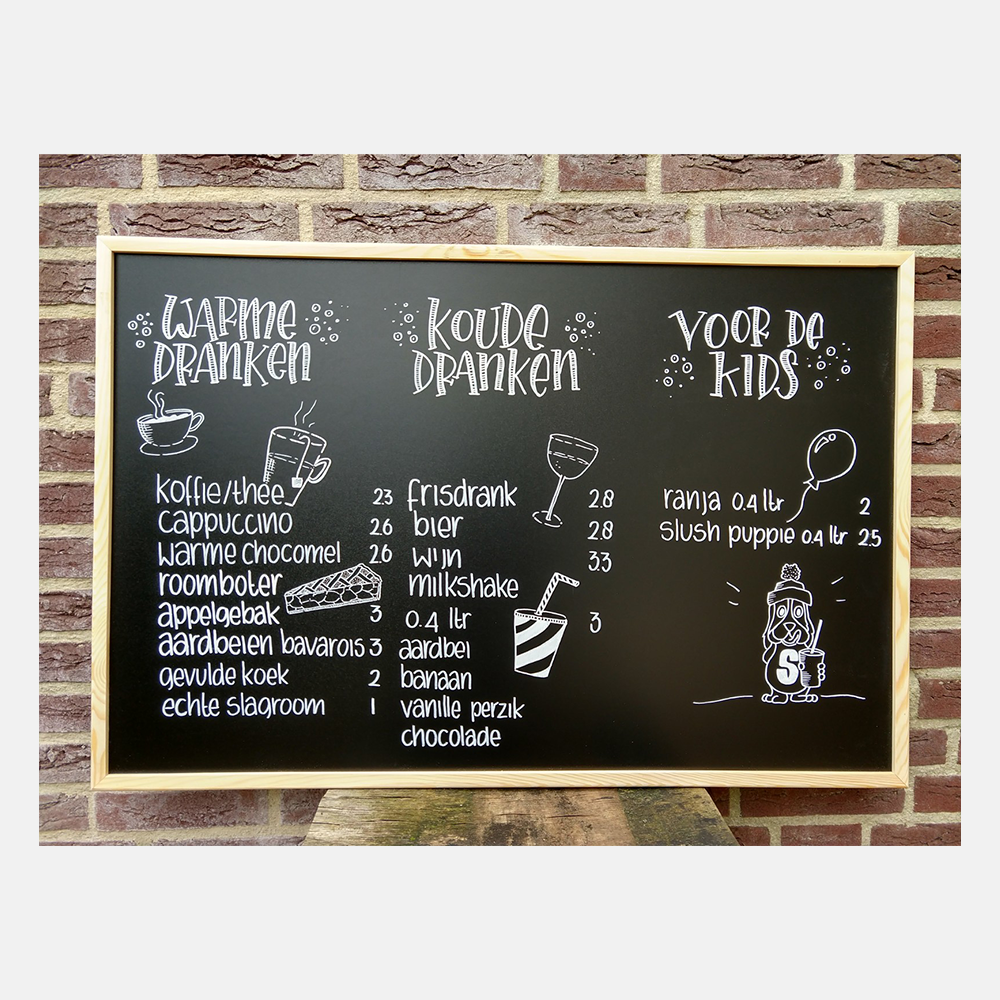 WARME
DRANKEN
koffie/thee 2.3
cappuccino 2.6
warme chocomel 2.6
roomboter
appelgebak 3
aardbeien bavarois 3
gevulde koek 2
echte slagroom 1
KOUDE
DRANKEN
frisdrank 2.8
bier 2.8
wijn 3.3
milkshake
0.4 ltr 3
aardbei
banaan
vanille perzik
chocolade
VOOR DE
KIDS
ranja 0.4 ltr 2
slush puppie 0.4 ltr 2.5
S